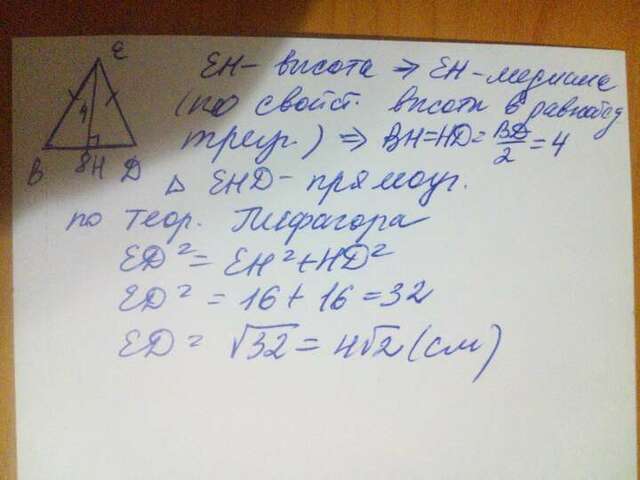 E
4
B 8 H D
EH - высота ⇒ EH - медиана
(по свойст. высоты в равнобед
треуг.) ⇒ BH = HD = BD/2 = 4
△ EHD - прямоуг.
по теор. Пифагора
ED² = EH² + HD²
ED² = 16 + 16 = 32
ED = √32 = 4√2 (см)